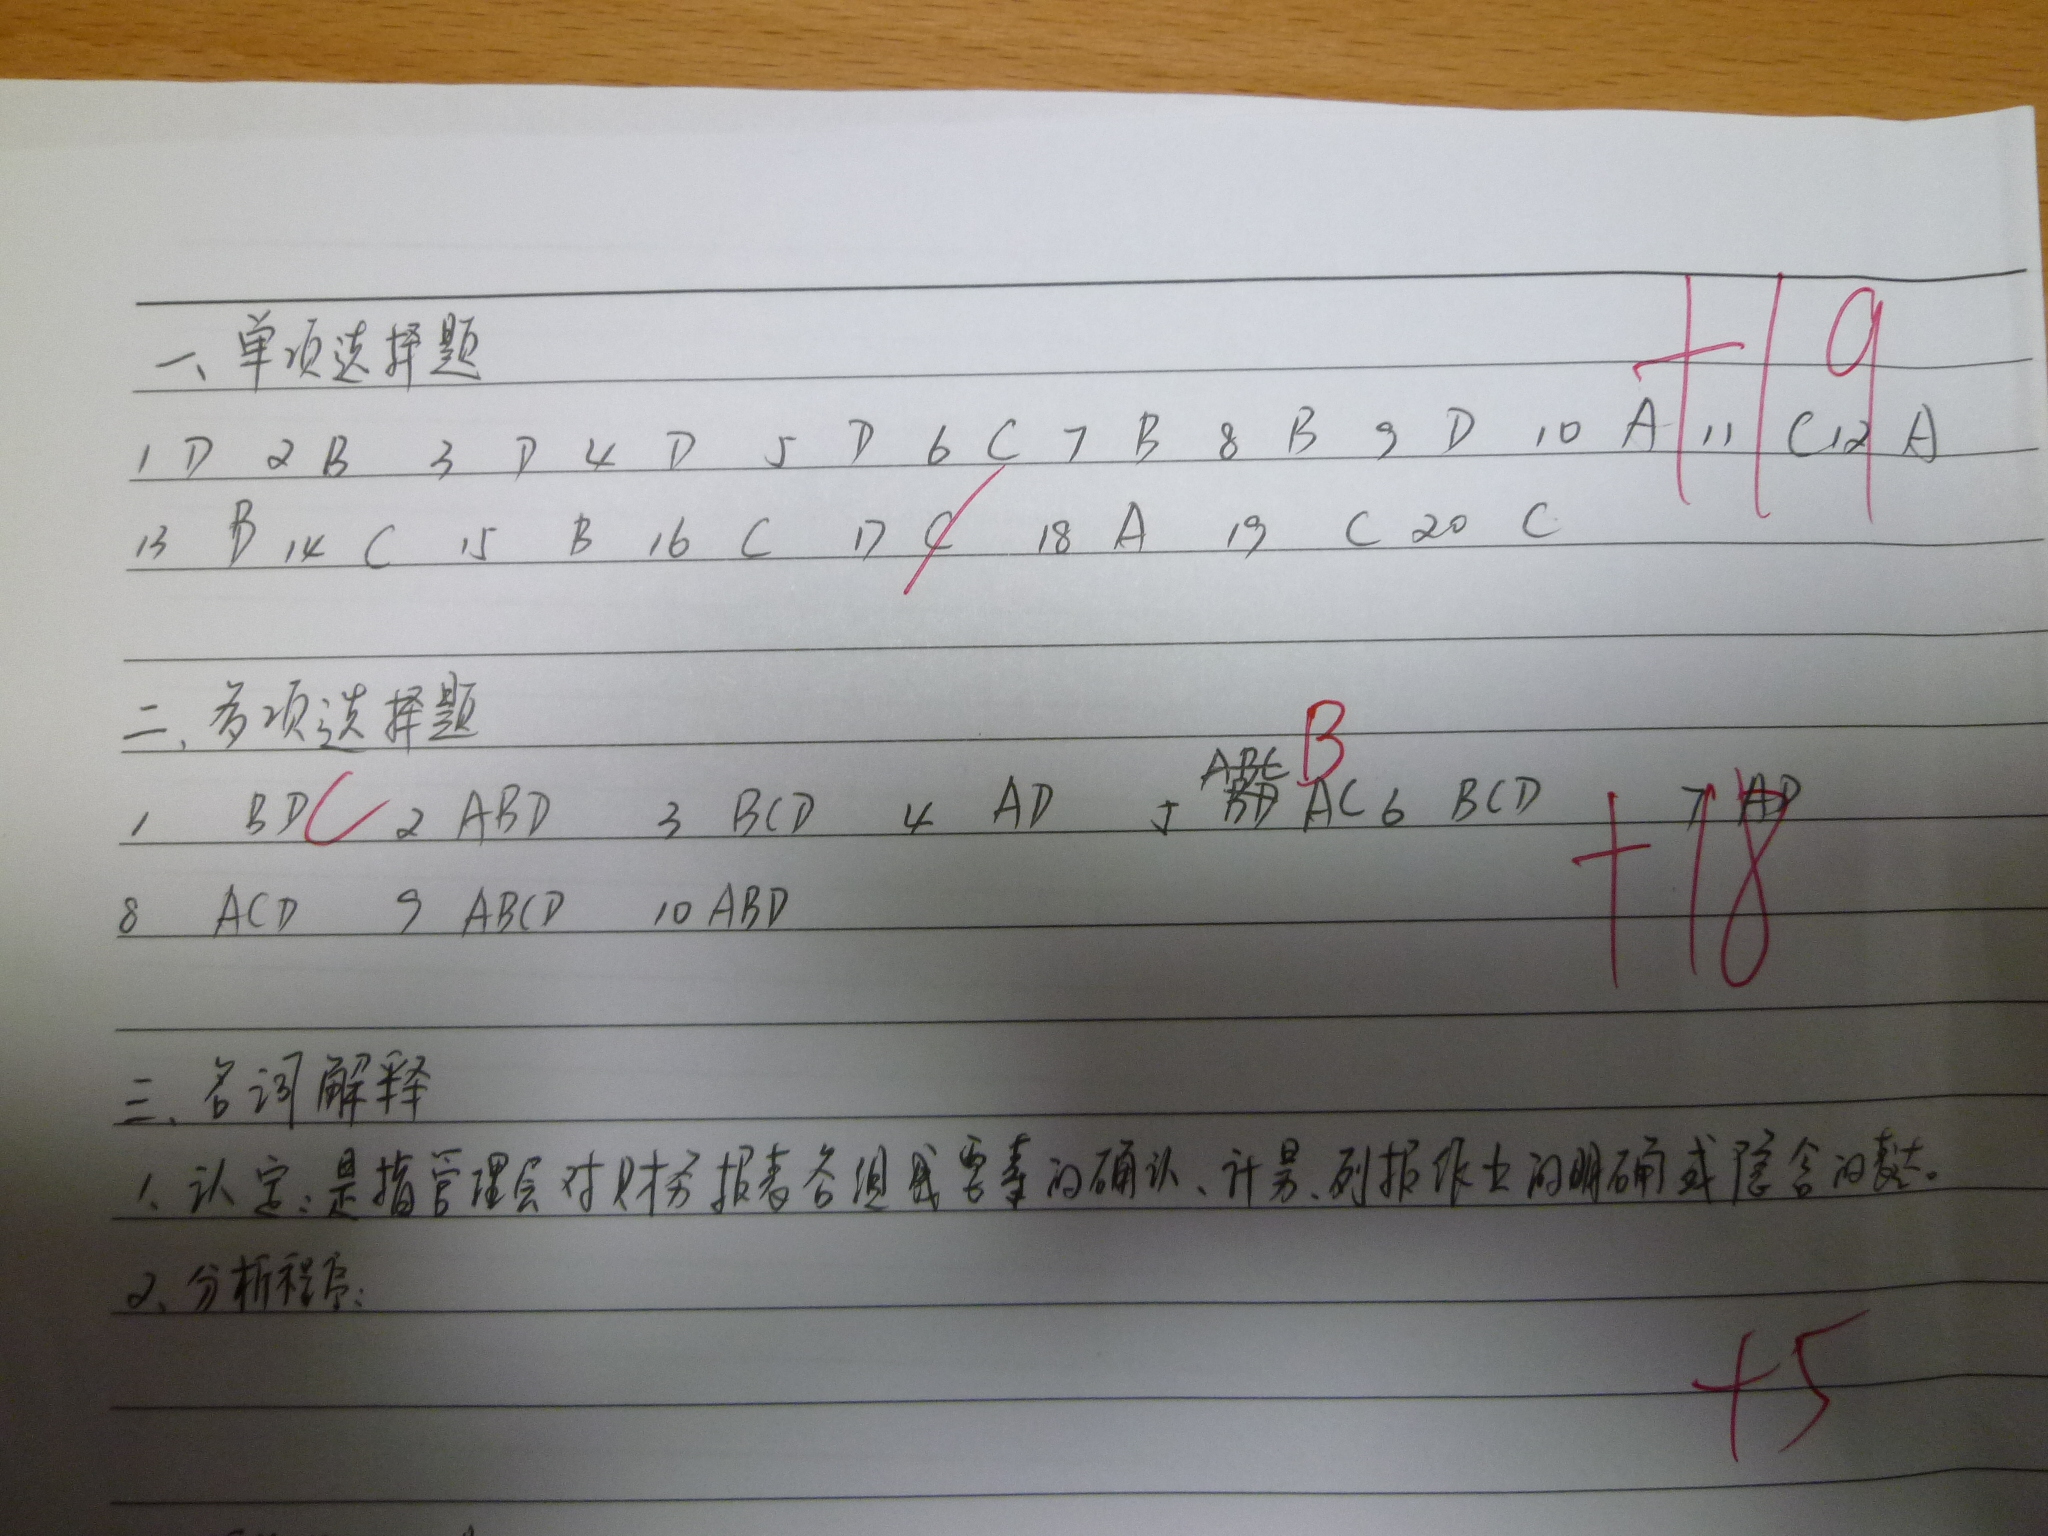 一、单项选择题 +19
1 D 2 B 3 D 4 D 5 D 6 C 7 B 8 B 9 D 10 A 11 C 12 A
13 B 14 C 15 B 16 C 17 C 18 A 19 C 20 C
二、多项选择题
B
1 BD C 2 ABD 3 BCD 4 AD 5 ABC BD AC 6 BCD 7 AD
+18
8 ACD 9 ABCD 10 ABD
三、名词解释
1、认定:是指管理层对财务报表各组成要素的确认、计量、列报作出的明确或隐含的表达。
2、分析程序:
+5